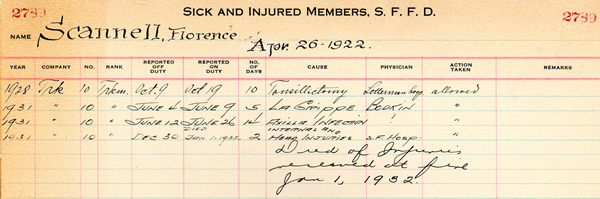 2789 SICK AND INJURED MEMBERS, S. F. F. D. 2789
NAME Scannell, Florence Apr. 26-1922.
YEAR COMPANY NO. RANK REPORTED OFF DUTY REPORTED ON DUTY NO. OF DAYS CAUSE PHYSICIAN ACTION TAKEN REMARKS
1928 Trk 10 Trkm. Oct. 9 Oct 19 10 Tonsillectomy allowed
1931 " 10 " JUNE 4 JUNE 9 5 LA GRIPPE BODKIN "
1931 " 10 " JUNE 12 JUNE 26 14 AXILLA INFECTION " "
DIED INTERNAL AND
1931 " 10 " DEC 30 JAN 1, 1932 2 HEAD INJURIES S.F. HOSP.
Died of Injuries
received at fire
Jan 1, 1932.